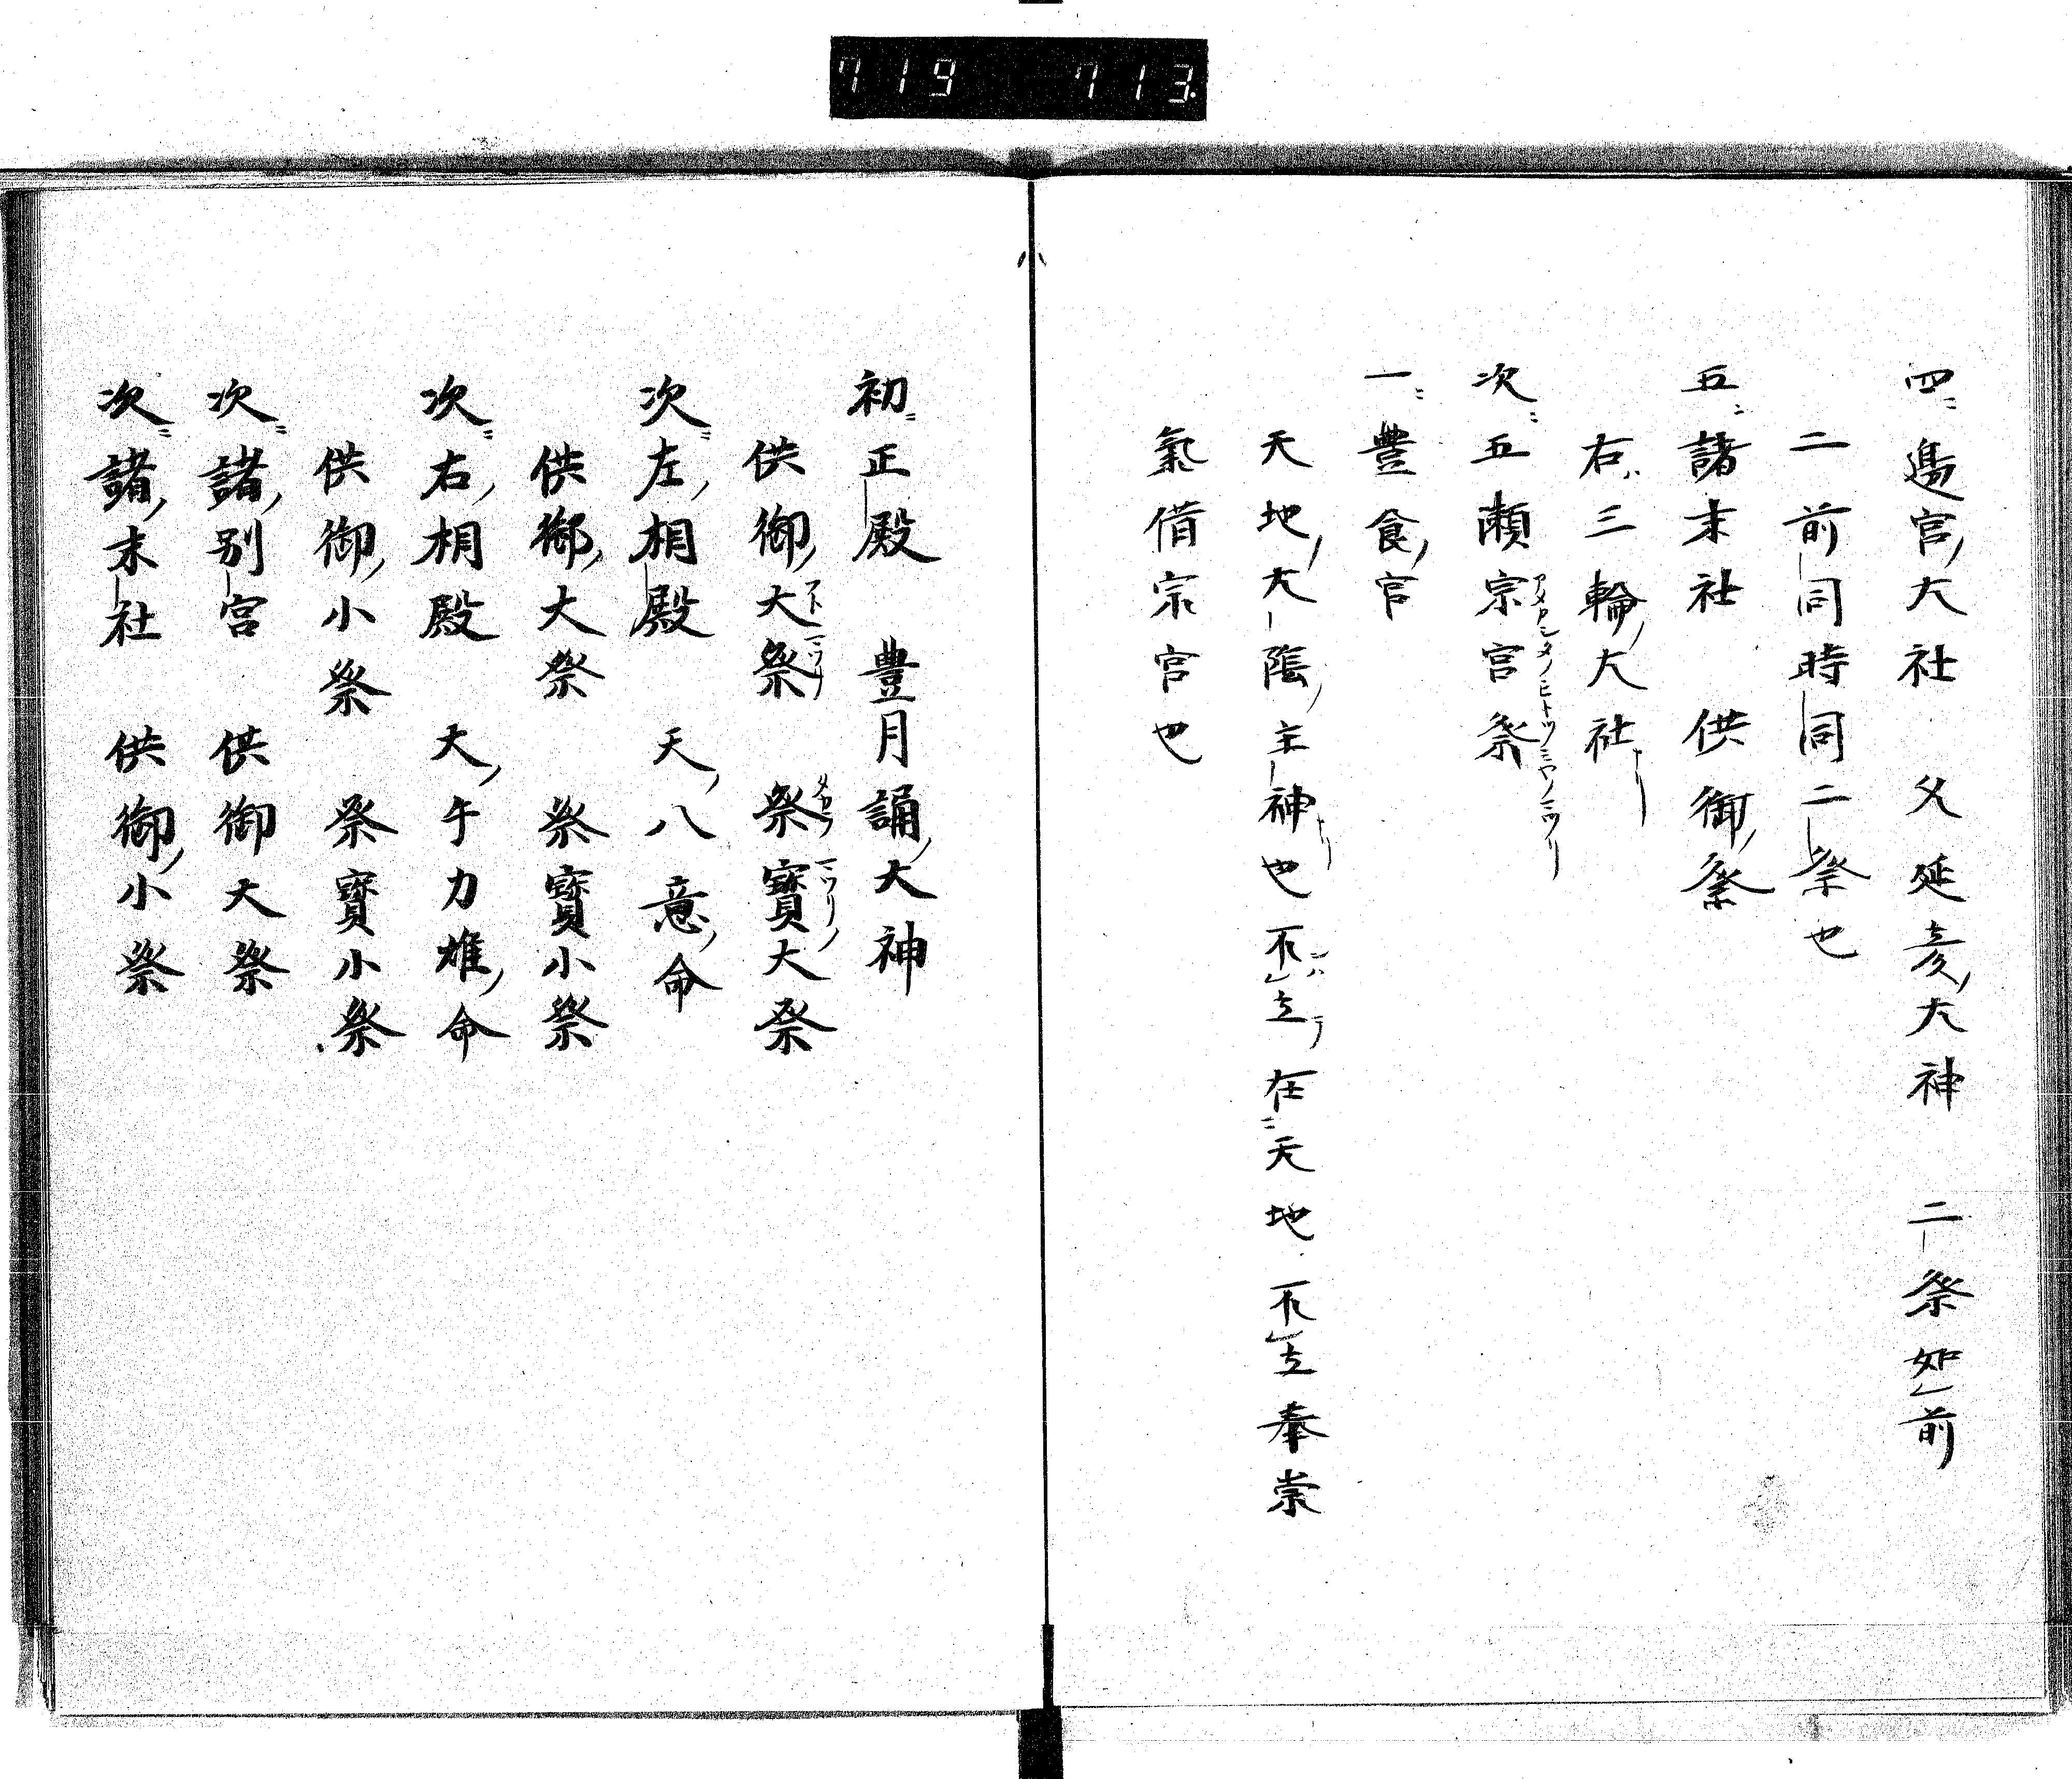 719 713
四ニ邊宮ノ大社 父延彦ノ大神 二祭如レ前
二前同時同二祭也
五ニ諸末社 供御ノ祭
右ハ三輪ノ大社ナリ
次ニ五瀬宗宮祭
一ニ豊食ノ宮
天地ノ大陰ノ主神也不レ立在ニ天地不レ立奉崇
氣借宗宮也
初ニ正殿 豊月誦ノ大神
供御ノ大祭 祭寳大祭
次ニ左ノ相殿 天ノ八意ノ命
供御ノ大祭 祭寳小祭
次ニ右ノ相殿 大ノ手力雄ノ命
供御ノ小祭 祭寳小祭
次ニ諸ノ別宮 供御大祭
次ニ諸ノ末社 供御ノ小祭